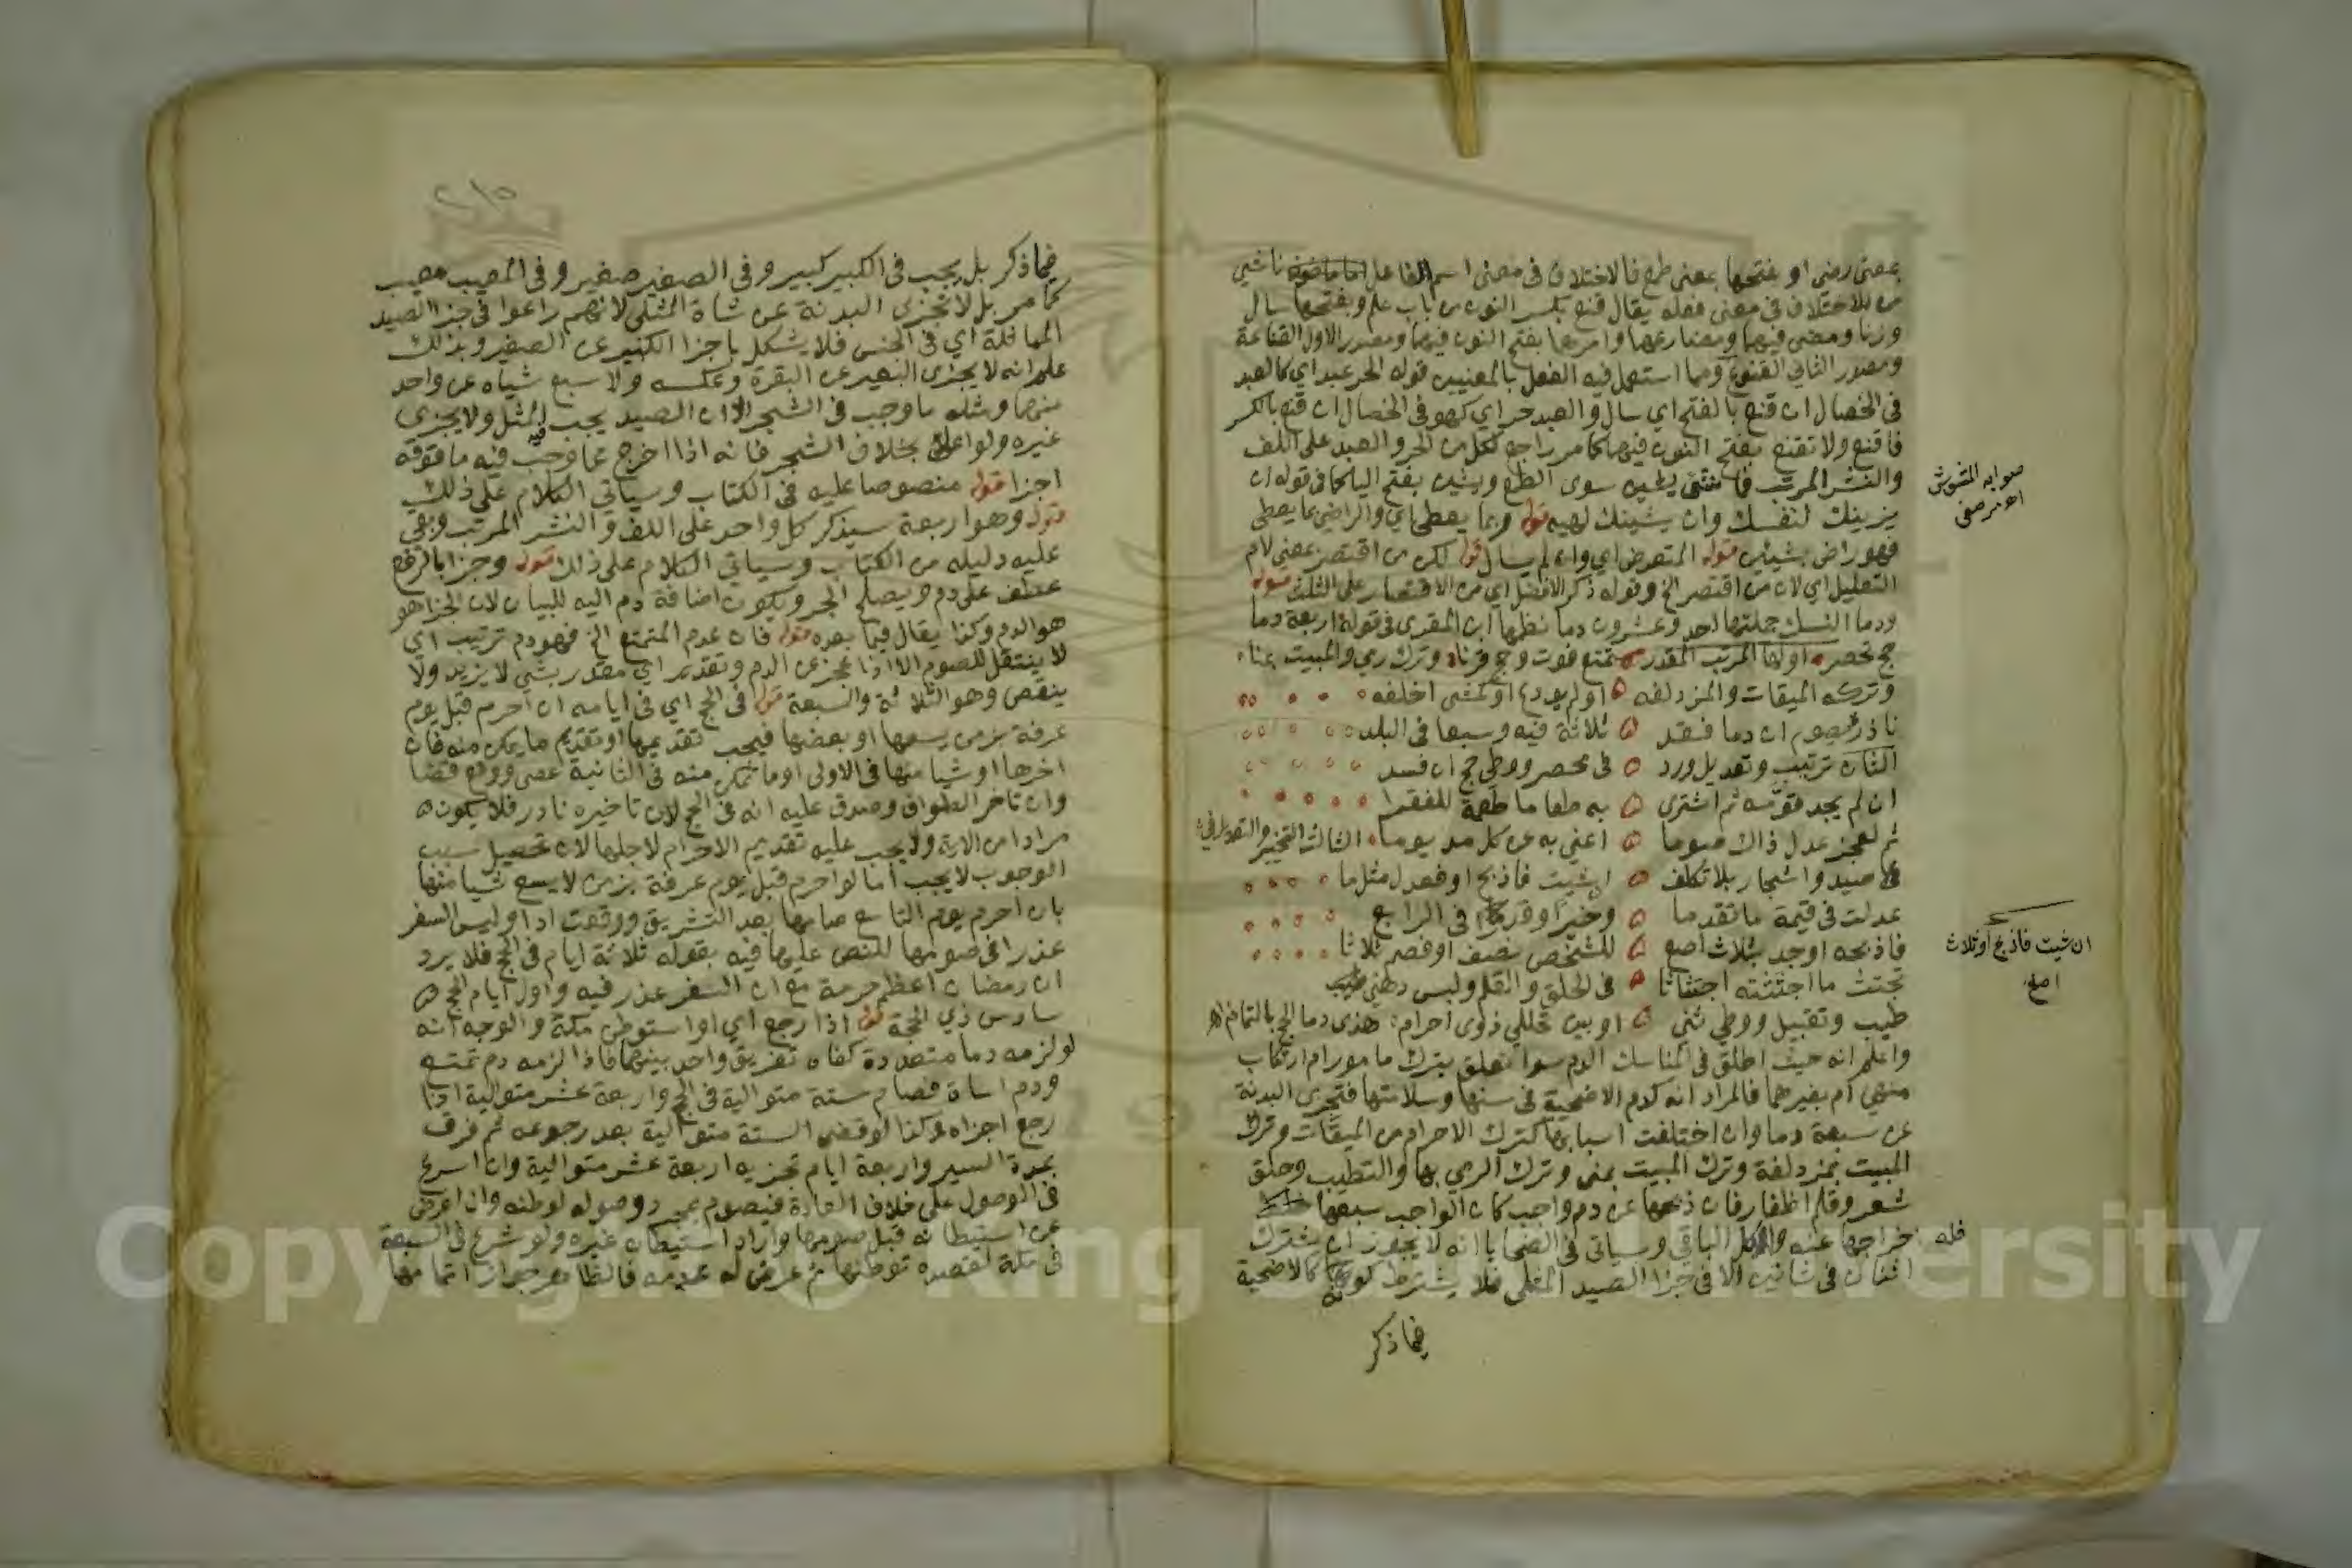 بمعنى رضي او بفتحها بمعنى طمع فالاختلاف في معنى اسم الفاعل ناشي
من الاختلاف في معنى فعله يقال قنع بكسر النون من باب علم وبفتحها سال
وزنا ومعنى فيهما ومضارعهما وامرهما بفتح النون فيهما ومصدر الاول القناعة
ومصدر الثاني القنوع ومما استعمل فيه الفعل بالمعنيين قوله الحر عبد اي كالعبد
في الخصال ان قنع بالفتح اي سال والعبد حر اي كهو في الخصال ان قنع بالكسر
فاقنع ولا تقنع بفتح النون فيهما كما مر راجع لكل من الحر والعبد على اللف
والنشر المرتب فما شئ يشين سوى الطمع ويشين بفتح اليا كما في قوله ان
يزينك لنفسك وان يشينك لهيه قوله وبما يعطى اي والراضي بما يعطى
فهو راض بشيئين قوله المتعرض اي وان لم يسال قوله لكن من اقتصر بمعنى لام
التعليل اي لان من اقتصر الخ وقوله ذكر الافضل اي من الاقتصار على الثلث قوله
ودما النسك جملتها احد وعشرون دما نظمها ابن المقري في قوله اربعة دما
حج تحصر اولها المرتب المقدر تمتع فوت وحج قرنا وترك رمي والمبيت بمنا
وتركه الميقات والمزدلفه او لم يودع او كمشى اخلفه
ناذر يصوم ان دما فقد ثلاثة فيه وسبعا في البلد
الثان ترتيب وتعديل ورد في محصر ووطي حج ان فسد
ان لم يجد قومه ثم اشترى به طعاما طعمة للفقرا
ثم لعجز عدل ذاك صوما اعني به عن كل مد يوما الثالث التخيير والتعديل في
صيد واشجار بلا تكلف ان شيت فاذبح او فعدل مثل ما
عدلت في قيمة ما تقدما وخيرا وقدرن في الرابع
فاذبحه او جد بثلاث اصع للشخص نصف او فصم ثلاثا
تجتث ما اجتثثته اجتثاثا في الحلق والقلم ولبس دهن
طيب وتقبيل ووطي ثني او بين تحللي ذوى احرام هذي دما الحج بالتمام اهـ
واعلم انه حيث اطلق في المناسك الدم سوا تعلق بترك مامور ام ارتكاب
منهي ام بغيرهما فالمراد انه كدم الاضحية في سنها وسلامتها فتجزى البدنة
عن سبعة دما وان اختلفت اسبابها كترك الاحرام من الميقات وترك
المبيت بمزدلفة وترك المبيت بمنى وترك الرمي بها والتطيب وحلق
شعر وقلم اظفار فان ذبحها عن دم واجب كان الواجب سبعها
فله اخراجها عنه واكل الباقي وسياتي في الضحايا انه لا يجوز ان يشترك
اثنان في شاتين الا في جزا الصيد المثلي فلا يشترط كونه كالاضحية
فيما ذكر
صوابه المشوش
اهـ مرصفي
ان شيت فاذبح او ثلاث
اصع
٢١٥
فيما ذكر بل يجب في الكبير كبير وفي الصغير صغير وفي المعيب معيب
كما مر بل لا تجزى البدنة عن شاة المثلي لانهم راعوا في جزا الصيد
المماثلة اي في الجنس فلا يشكل باجزا الكبير عن الصغير وبذلك
علم انه لا يجزى البعير عن البقرة وعكسه ولا سبع شياه عن واحد
منهما ومثله ما وجب في الشجر الا ان الصيد يجب المثل ولا يجزي
غيره ولو اعلى بخلاف الشجر فانه اذا اخرج عما وجب فيه ما فوقه
اجزا قوله منصوصا عليه في الكتاب وسياتي الكلام على ذلك
قوله وهو اربعة سيذكر كل واحد على اللف والنشر المرتب وبقي
عليه دليله من الكتاب وسياتي الكلام على ذلك قوله وجزا بالرفع
عطف على دم ويصلح الجر ويكون اضافة دم اليه للبيان لان الجزا هو
هو الدم وكذا يقال فيما بعده قوله فان عدم المتمتع الخ فهو دم ترتيب اي
لا ينتقل للصوم الا اذا عجز عن الدم وتقدير اي مقدر بشي لا يزيد ولا
ينقص وهو الثلاثة والسبعة قوله في الحج اي في ايامه ان احرم قبل يوم
عرفة بزمن يسعها او بعضها فيجب تقديمها او تقديم ما يمكن منه فان
اخرها او شيا منها في الاولى او ما تمكن منه في الثانية عصى ووقع قضا
وان تاخر الطواف وصدق عليه انه في الحج لان تاخيره نادر فلا يكون
مرادا من الاية ولا يجب عليه تقديم الاحرام لاجلها لان تحصيل سبب
الوجوب لا يجب اما لو احرم قبل يوم عرفة بزمن لا يسع شيا منها
بان احرم يوم التاسع صامها بعد التشريق ووقعت ادا وليس السفر
عذرا في صومها للنص عليها فيه بقوله ثلاثة ايام في الحج فلا يرد
ان رمضان اعظم حرمة مع ان السفر عذر فيه واول ايام الحج
سادس ذي الحجة قوله اذا رجع اي او استوطن مكة والوجه انه
لو لزمه دما متعددة كفاه تفريق واحد بينهما فاذا لزمه دم تمتع
ودم اساة فصام ستة متوالية في الحج واربعة عشر متوالية اذا
رجع اجزاه وكذا لو قضى الستة متوالية بعد رجوعه ثم فرق
بمدة السير واربعة ايام تجزيه اربعة عشر متوالية وان اسرع
في الوصول على خلاف العادة فيصوم بمجرد وصوله لوطنه وان اعرض
عن استيطانه قبل صومها واراد استيطان غيره ولو شرع في السبعة
في مكة لقصده توطنها ثم عرض له عدمه فالظاهر جواز اتمامها
Copyright © King Saud University